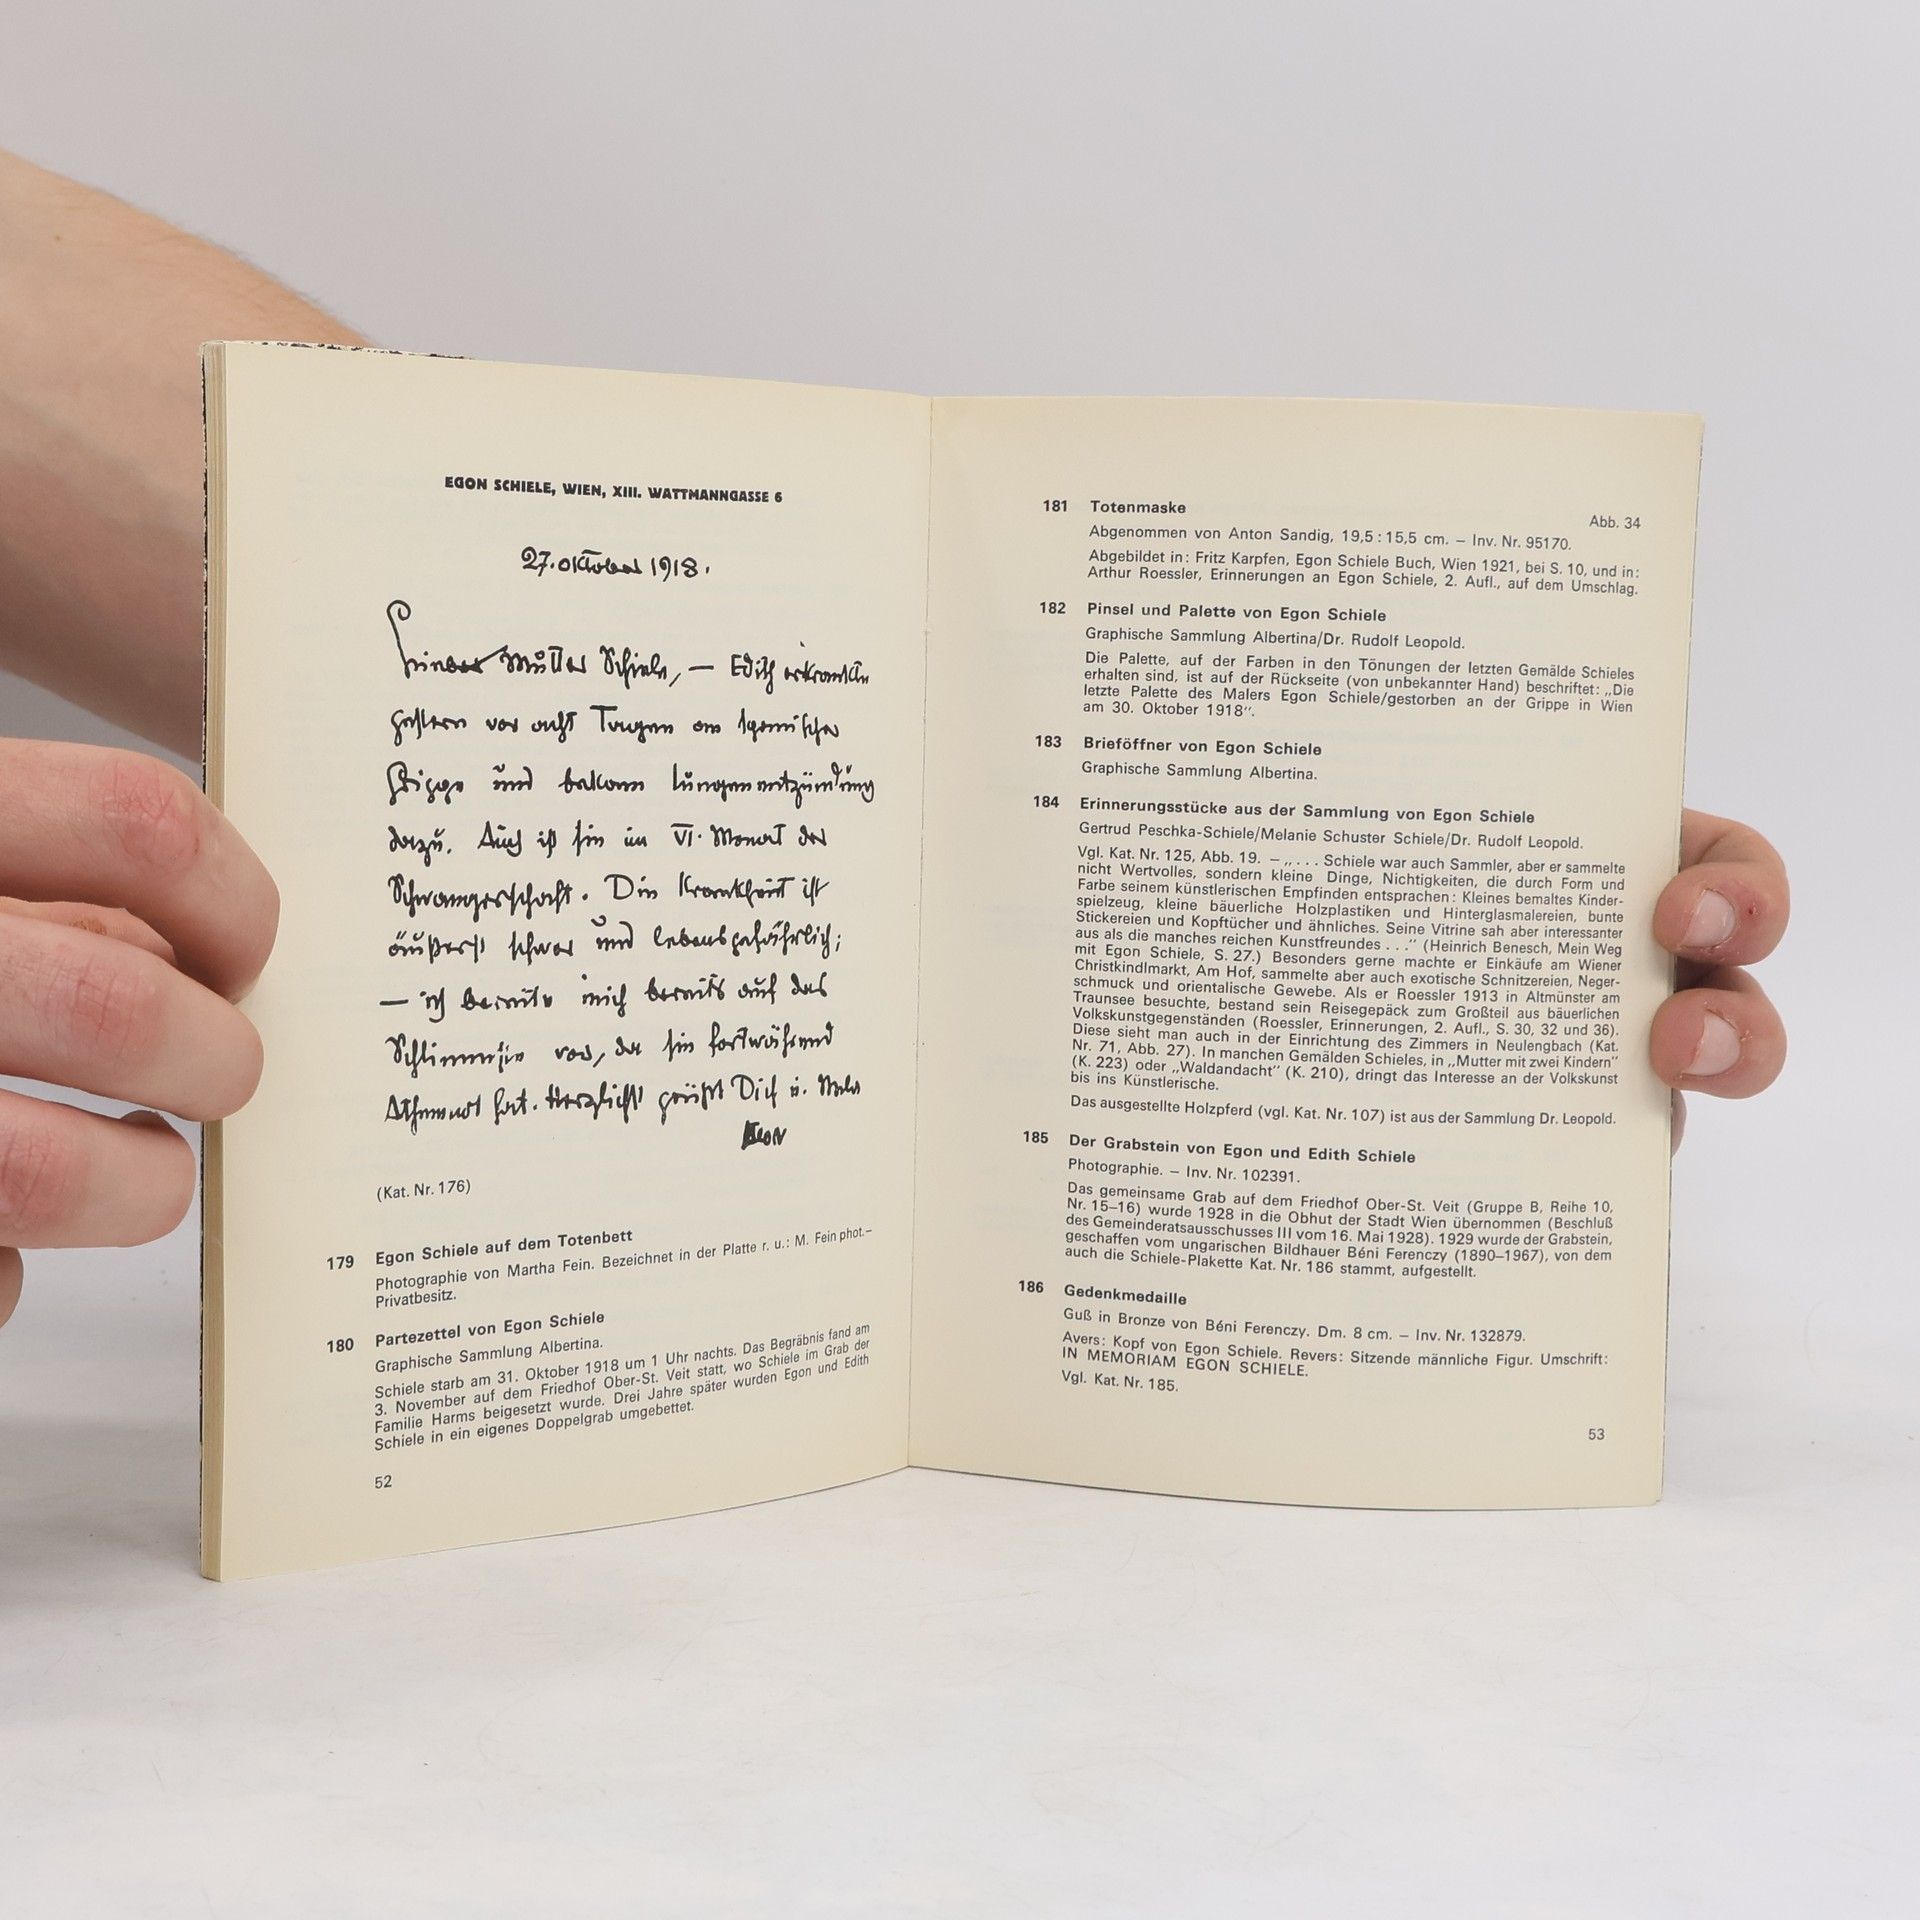 EGON SCHIELE, WIEN, XIII. WATTMANNGASSE 6
27. oktober 1918.
Mutter Schiele, — Edith erkrankte
gestern vor acht Tagen an spanischer
Grippe und bekam Lungenentzündung
dazu. Auch ist sie im VI. Monat der
Schwangerschaft. Die Krankheit ist
äußerst schwer und lebensgefährlich;
— ich bereite mich bereits auf das
Schlimmste vor, da sie fortwährend
Athemnot hat. Herzlichst grüßt Dich u. Mela
EGON
(Kat. Nr. 176)
179 Egon Schiele auf dem Totenbett
Photographie von Martha Fein. Bezeichnet in der Platte r. u.: M. Fein phot.–
Privatbesitz.
180 Partezettel von Egon Schiele
Graphische Sammlung Albertina.
Schiele starb am 31. Oktober 1918 um 1 Uhr nachts. Das Begräbnis fand am
3. November auf dem Friedhof Ober-St. Veit statt, wo Schiele im Grab der
Familie Harms beigesetzt wurde. Drei Jahre später wurden Egon und Edith
Schiele in ein eigenes Doppelgrab umgebettet.
52
181 Totenmaske
Abb. 34
Abgenommen von Anton Sandig, 19,5 : 15,5 cm. – Inv. Nr. 95170.
Abgebildet in: Fritz Karpfen, Egon Schiele Buch, Wien 1921, bei S. 10, und in:
Arthur Roessler, Erinnerungen an Egon Schiele, 2. Aufl., auf dem Umschlag.
182 Pinsel und Palette von Egon Schiele
Graphische Sammlung Albertina/Dr. Rudolf Leopold.
Die Palette, auf der Farben in den Tönungen der letzten Gemälde Schieles
erhalten sind, ist auf der Rückseite (von unbekannter Hand) beschriftet: „Die
letzte Palette des Malers Egon Schiele/gestorben an der Grippe in Wien
am 30. Oktober 1918“.
183 Brieföffner von Egon Schiele
Graphische Sammlung Albertina.
184 Erinnerungsstücke aus der Sammlung von Egon Schiele
Gertrud Peschka-Schiele/Melanie Schuster Schiele/Dr. Rudolf Leopold.
Vgl. Kat. Nr. 125, Abb. 19. – „. . . Schiele war auch Sammler, aber er sammelte
nicht Wertvolles, sondern kleine Dinge, Nichtigkeiten, die durch Form und
Farbe seinem künstlerischen Empfinden entsprachen: Kleines bemaltes Kinder-
spielzeug, kleine bäuerliche Holzplastiken und Hinterglasmalereien, bunte
Stickereien und Kopftücher und ähnliches. Seine Vitrine sah aber interessanter
aus als die manches reichen Kunstfreundes . . .“ (Heinrich Benesch, Mein Weg
mit Egon Schiele, S. 27.) Besonders gerne machte er Einkäufe am Wiener
Christkindlmarkt, Am Hof, sammelte aber auch exotische Schnitzereien, Neger-
schmuck und orientalische Gewebe. Als er Roessler 1913 in Altmünster am
Traunsee besuchte, bestand sein Reisegepäck zum Großteil aus bäuerlichen
Volkskunstgegenständen (Roessler, Erinnerungen, 2. Aufl., S. 30, 32 und 36).
Diese sieht man auch in der Einrichtung des Zimmers in Neulengbach (Kat.
Nr. 71, Abb. 27). In manchen Gemälden Schieles, in „Mutter mit zwei Kindern“
(K. 223) oder „Waldandacht“ (K. 210), dringt das Interesse an der Volkskunst
bis ins Künstlerische.
Das ausgestellte Holzpferd (vgl. Kat. Nr. 107) ist aus der Sammlung Dr. Leopold.
185 Der Grabstein von Egon und Edith Schiele
Photographie. – Inv. Nr. 102391.
Das gemeinsame Grab auf dem Friedhof Ober-St. Veit (Gruppe B, Reihe 10,
Nr. 15–16) wurde 1928 in die Obhut der Stadt Wien übernommen (Beschluß
des Gemeinderatsausschusses III vom 16. Mai 1928). 1929 wurde der Grabstein,
geschaffen vom ungarischen Bildhauer Béni Ferenczy (1890–1967), von dem
auch die Schiele-Plakette Kat. Nr. 186 stammt, aufgestellt.
186 Gedenkmedaille
Guß in Bronze von Béni Ferenczy. Dm. 8 cm. – Inv. Nr. 132879.
Avers: Kopf von Egon Schiele. Revers: Sitzende männliche Figur. Umschrift:
IN MEMORIAM EGON SCHIELE.
Vgl. Kat. Nr. 185.
53